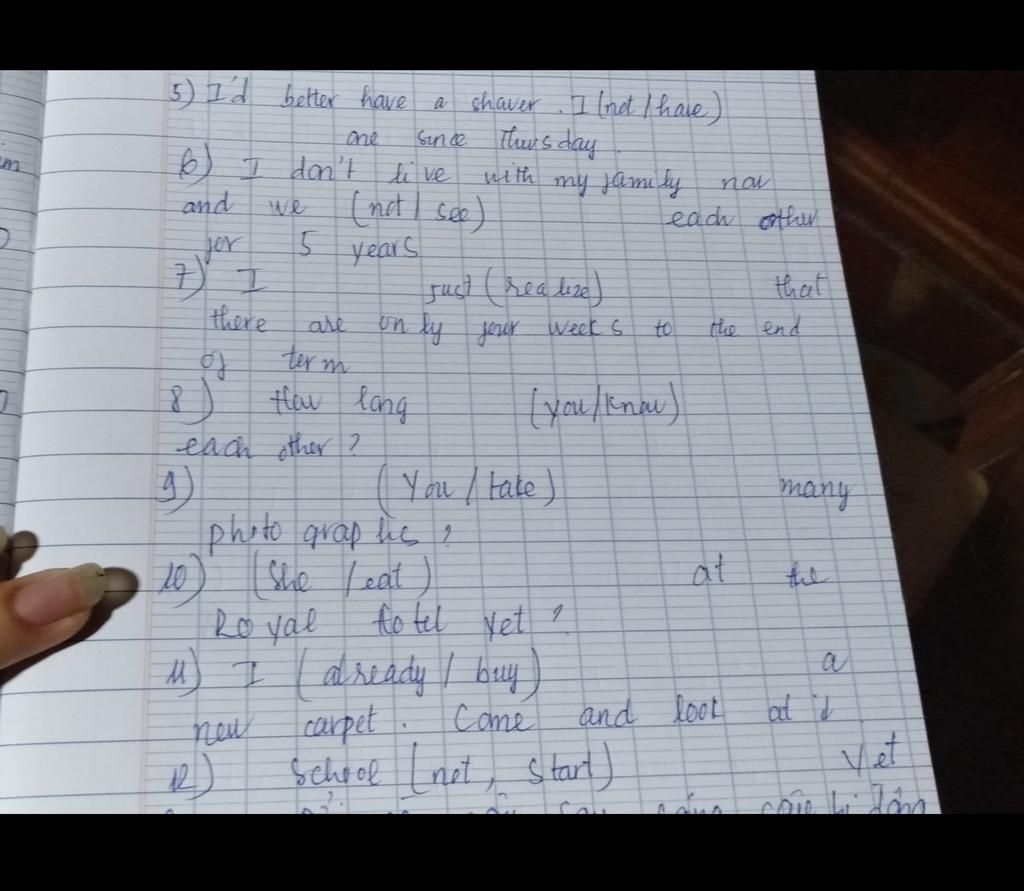 5) I'd better have a shaver. I (not / have)
one since Thusday
6) I don't live with my family now
and we (not / see) each other
for 5 years
7) I just (realize) that
there are only four weeks to the end
of term
8) How long (you/know)
each other?
9) (You / take) many
photographs?
10) (She / eat) at the
Royal Hotel yet?
11) I (already / buy) a
new carpet. Come and look at it
12) School (not, start) yet